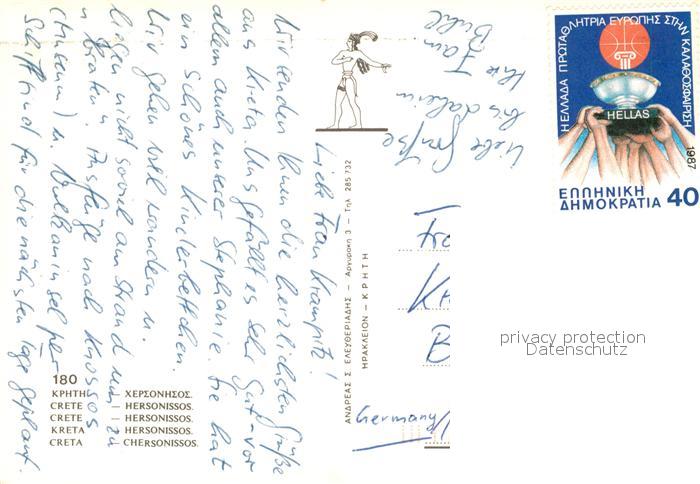 Liebe Frau Krampitz!
Wir senden Ihnen die herzlichsten Grüße
aus Kreta. Uns gefällt es sehr gut - vor
allem auch unserer Stephanie. Sie hat
ein schönes Kinderbettchen.
Wir gehen viel wandern u.
liegen nicht soviel am Strand um zu
braten. Ausflüge nach Knossos
u. Vulkaninsel per
Schiff sind für die nächsten Tage geplant.
Liebe Grüße
bis daheim
Ihre Fam.
180
ΚΡΗΤΗ – ΧΕΡΣΟΝΗΣΟΣ.
CRETE – HERSONISSOS.
CRETE – HERSONISSOS.
KRETA – HERSONISSOS.
CRETA – CHERSONISSOS.
ΑΝΔΡΕΑΣ Σ. ΕΛΕΥΘΕΡΙΑΔΗΣ – Αργυράκη 3 – Τηλ. 285.732
ΗΡΑΚΛΕΙΟΝ – ΚΡΗΤΗ
Germany
Η ΕΛΛΑΔΑ ΠΡΩΤΑΘΛΗΤΡΙΑ ΕΥΡΩΠΗΣ ΣΤΗΝ ΚΑΛΑΘΟΣΦΑΙΡΙΣΗ
HELLAS
1987
ΕΛΛΗΝΙΚΗ
ΔΗΜΟΚΡΑΤΙΑ 40
privacy protection
Datenschutz